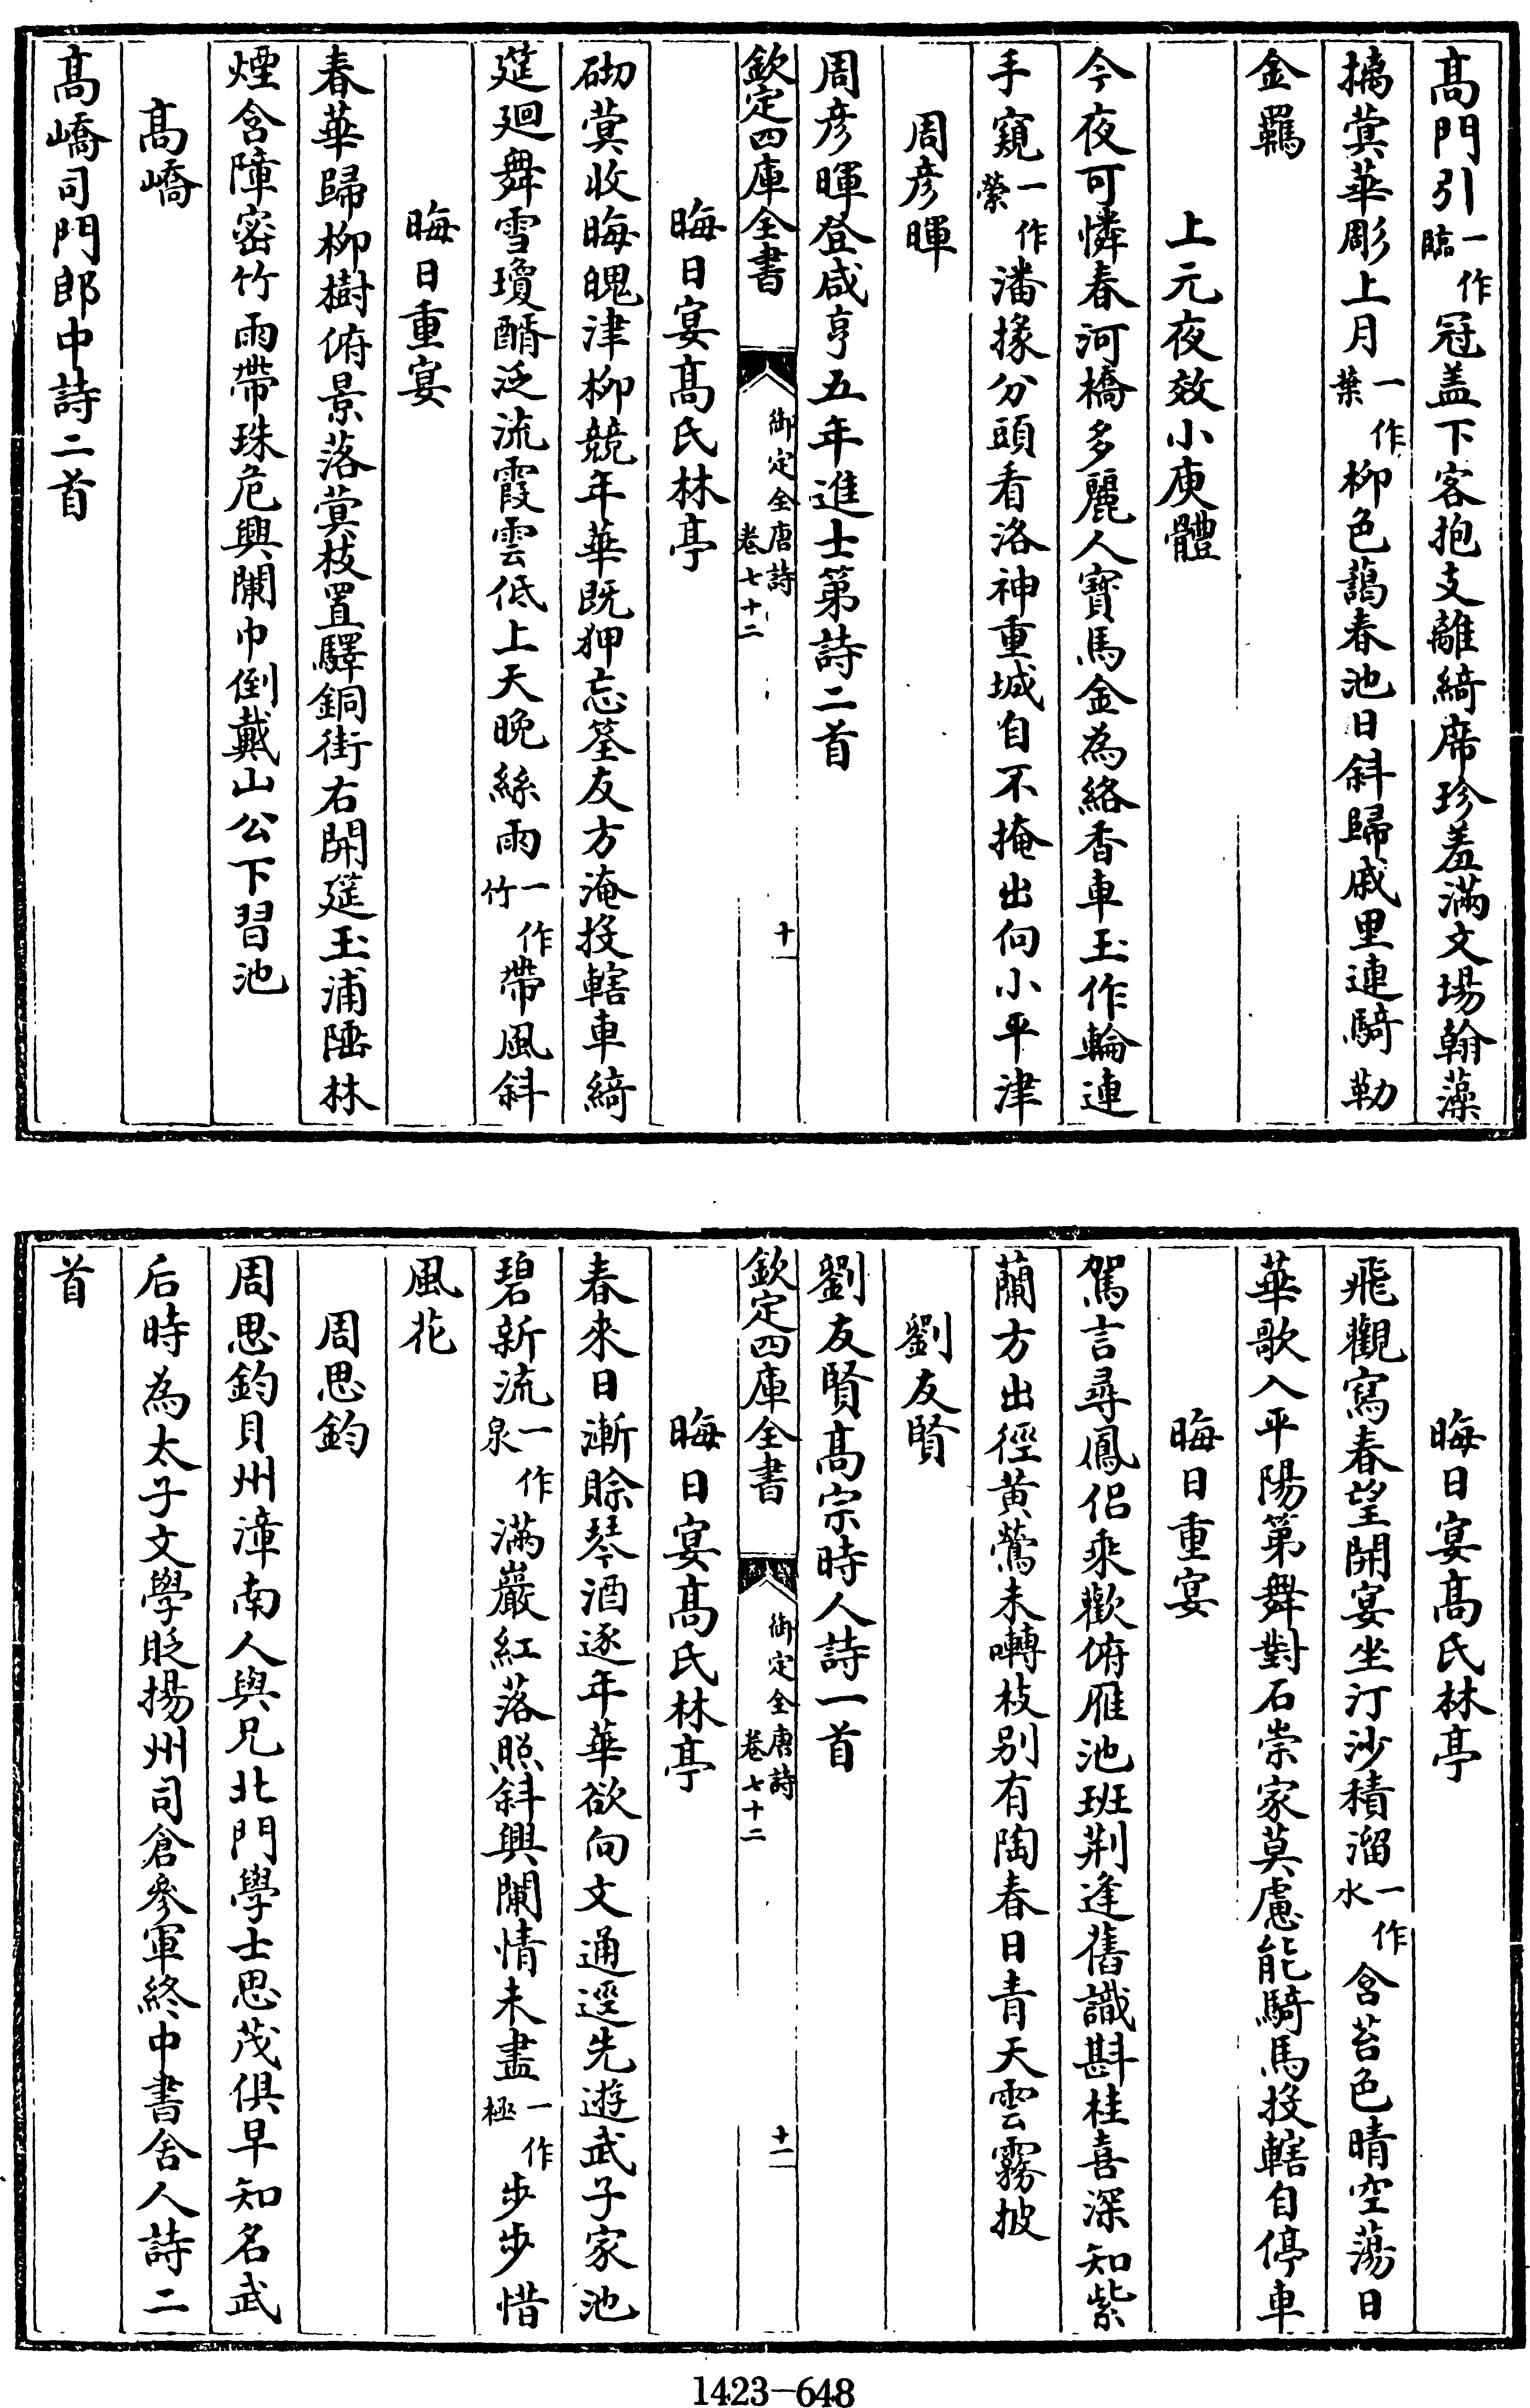 髙門引一作臨冠盖下客抱支離綺席珍羞滿文場翰藻
摛蓂華彫上月一作葉柳色藹春池日斜歸戚里連騎勒
金羈
上元夜效小庾體
今夜可憐春河橋多麗人寳馬金為絡香車玉作輪連
手窺一作縈潘掾分頭看洛神重城自不掩出向小平津
周彦暉
周彦暉登咸亨五年進士第詩二首
欽定四庫全書
御定全唐詩
卷七十二
十
晦日宴髙氏林亭
砌蓂收晦魄津柳競年華既狎忘筌友方淹投轄車綺
筵廻舞雪瓊醑泛流霞雲低上天晚絲雨一作竹帶風斜
晦日重宴
春華歸柳樹俯景落蓂枝置驛銅街右開筵玉浦陲林
煙含障密竹雨帶珠危興闌巾倒戴山公下習池
髙嶠
髙嶠司門郎中詩二首
晦日宴髙氏林亭
飛觀寫春望開宴坐汀沙積溜一作水含苔色晴空蕩日
華歌入平陽第舞對石崇家莫慮能騎馬投轄自停車
晦日重宴
駕言尋鳳侣乘歡俯雁池班荆逢舊識斟桂喜深知紫
蘭方出徑黄鶯未囀枝别有陶春日青天雲霧披
劉友賢
劉友賢髙宗時人詩一首
欽定四庫全書
御定全唐詩
卷七十二
十一
晦日宴髙氏林亭
春來日漸賒琴酒逐年華欲向文通逕先遊武子家池
碧新流一作泉滿巖紅落照斜興闌情未盡一作極步步惜
風花
周思鈞
周思鈞貝州漳南人與兄北門學士思茂俱早知名武
后時為太子文學貶揚州司倉參軍終中書舍人詩二
首
1423—648